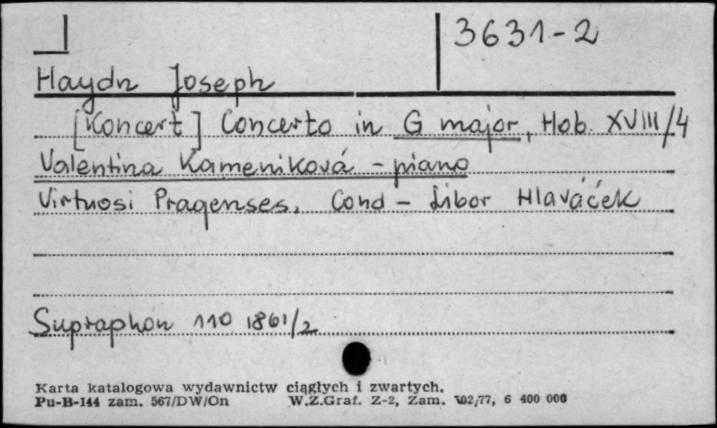 3631-2
Haydn Joseph
[Koncert] Concerto in G major, Hob. XVIII/4
Valentina Kameniková - piano
Virtuosi Pragenses, Cond - Libor Hlaváček
Supraphon 110 1861/2
Karta katalogowa wydawnictw ciągłych i zwartych.
Pu-B-144 zam. 567/DW/On W.Z.Graf. Z-2, Zam. 102/77, 6 400 000